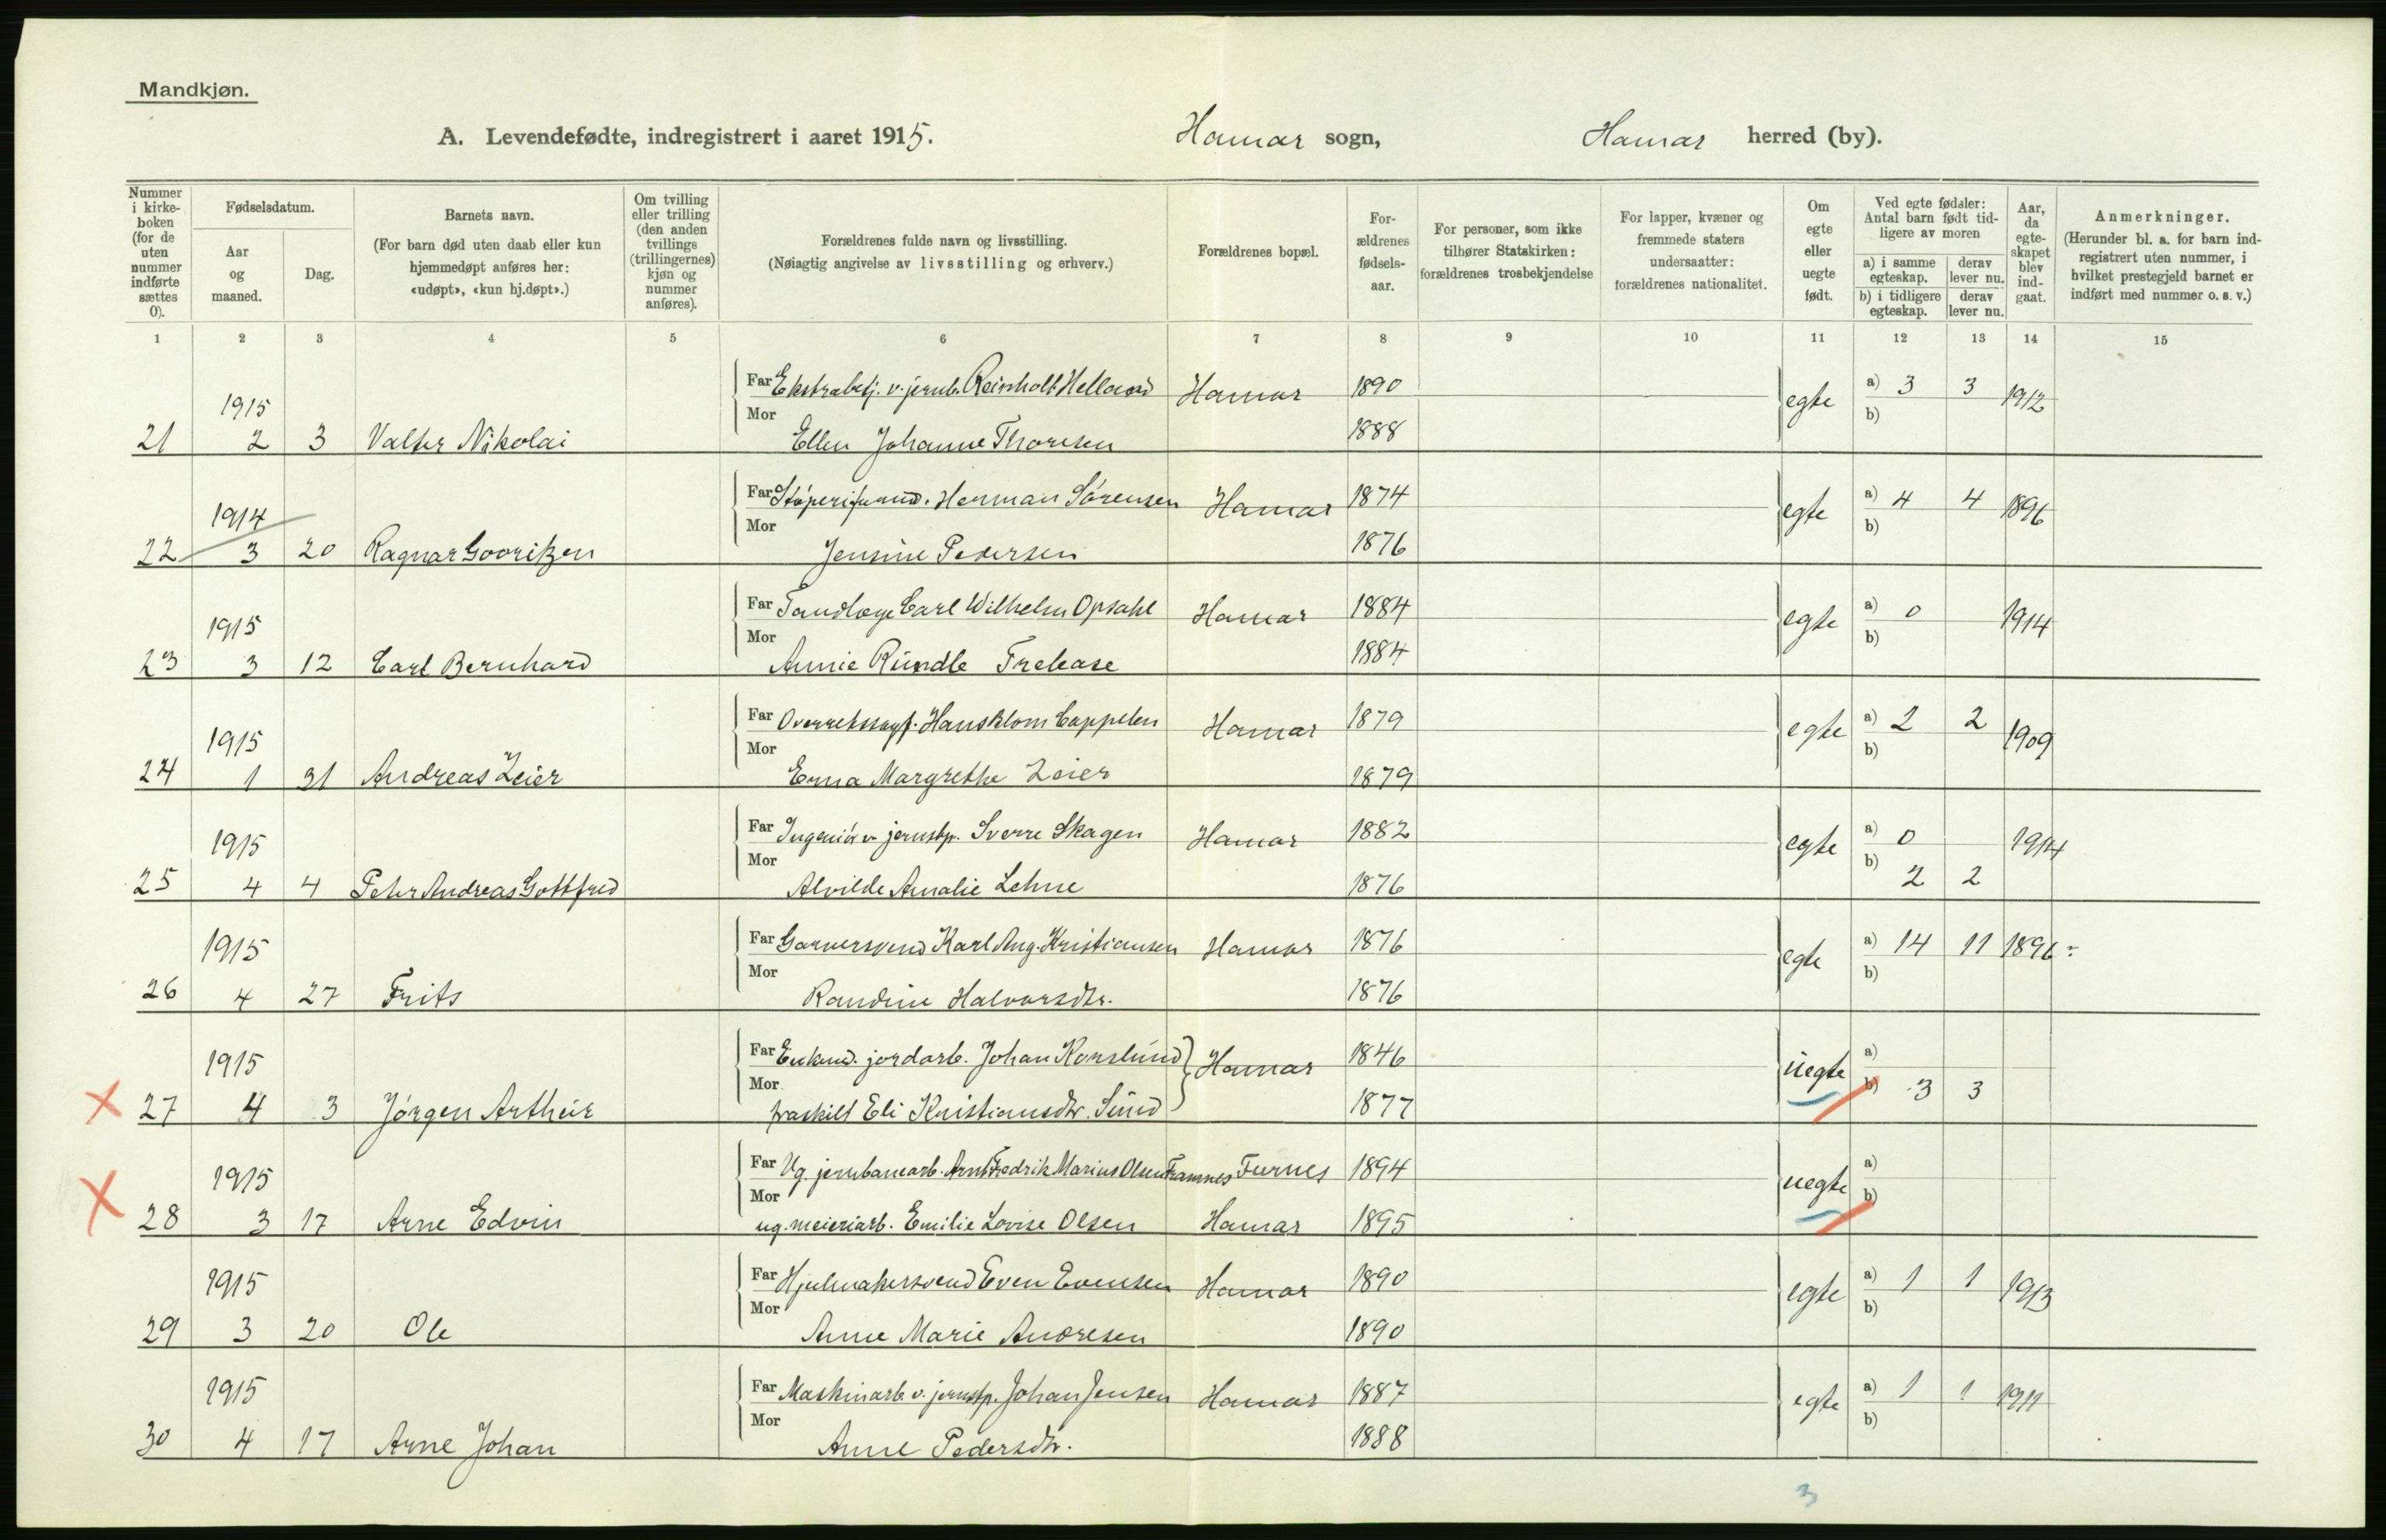 Mandkjøn.
A. Levendefødte, indregistrert i aaret 1915. Hamar sogn, Hamar herred (by).
Nummer i kirkeboken (for de uten nummer indførte sættes 0).
Fødselsdatum.
Aar og maaned.
Dag.
Barnets navn.
(For barn død uten daab eller kun hjemmedøpt anføres her: «udøpt», «kun hj.døpt».)
Om tvilling eller trilling (den anden tvillings (trillingernes) kjøn og nummer anføres).
Forældrenes fulde navn og livsstilling.
(Nøiagtig angivelse av livsstilling og erhverv.)
Forældrenes bopæl.
For-ældrenes fødsels-aar.
For personer, som ikke tilhører Statskirken: forældrenes trosbekjendelse
For lapper, kvæner og fremmede staters undersaatter: forældrenes nationalitet.
Om egte eller uegte født.
Ved egte fødsler: Antal barn født tidligere av moren
a) i samme egteskap. derav lever nu.
b) i tidligere egteskap. derav lever nu.
Aar, da egteskapet blev indgaat.
Anmerkninger.
(Herunder bl. a. for barn indregistrert uten nummer, i hvilket prestegjeld barnet er indført med nummer o. s. v.)
1 2 3 4 5 6 7 8 9 10 11 12 13 14 15
Far Ekstrabetj. v. jernb. Reinholt Helland Hamar 1890 egte a) 3 3 1912
1915 Mor b)
21 2 3 Valter Nikolai Ellen Johanne Thoresen 1888
Far Støperiformd. Herman Sørensen Hamar 1874 egte a) 4 4 1896
1914 Mor b)
22 3 20 Ragnar Jensine Pedersen 1876
Far Tandlæge Carl Wilhelm Opsahl Hamar 1884 egte a) 0 1914
1915 Mor b)
23 3 12 Carl Bernhard Annie Rundle Trelease 1884
Far Overretssagf. Hans Blom Cappelen Hamar 1879 egte a) 2 2 1909
1915 Mor b)
24 1 31 Andreas Zeier Erna Margrethe Zeier 1879
Far Ingeniør v. jernstp. Sverre Skagen Hamar 1882 egte a) 0 1914
1915 Mor b) 2 2
25 4 4 Peter Andreas Gottfred Alvilde Amalie Lehne 1876
Far Garversvend Karl Aug. Kristiansen Hamar 1876 egte a) 14 11 1896
1915 Mor b)
26 4 27 Frits Randine Halvorsdtr. 1876
Far Enkmd. jordarb. Johan Korslund Hamar 1846 uegte a)
1915 Mor b) 3 3
27 4 3 Jørgen Arthur fraskilt Eli Kristiansdtr. Sund 1877
Far Ug. jernbanearb. Arnt Fredrik Marius Olsen Framnes Furnes 1894 uegte a)
1915 Mor b)
28 3 17 Arne Edvin ug. meieriarb. Emilie Lovise Olsen Hamar 1895
Far Hjulmakersvend Even Evensen Hamar 1890 egte a) 1 1 1913
1915 Mor b)
29 3 20 Ole Anne Marie Andresen 1890
Far Maskinarb. v. jernstp. Johan Jensen Hamar 1887 egte a) 1 1 1911
1915 Mor b)
30 4 17 Arne Johan Anne Pedersdtr. 1888
3